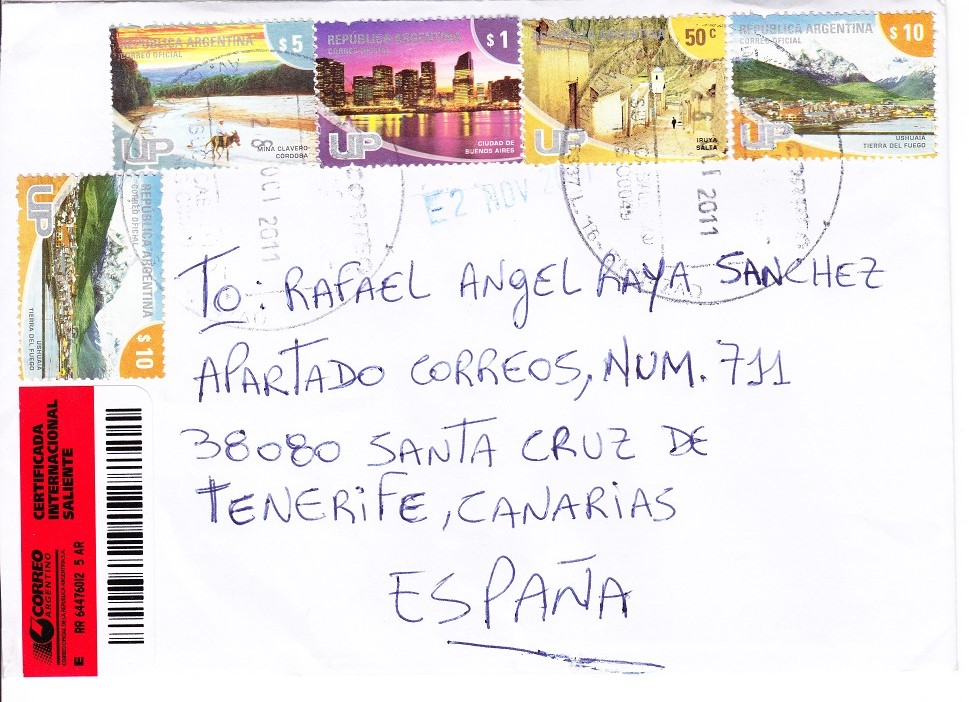 REPÚBLICA ARGENTINA
CORREO OFICIAL
$ 5
UP
MINA CLAVERO
CÓRDOBA
REPÚBLICA ARGENTINA
CORREO OFICIAL
$ 1
UP
CIUDAD DE
BUENOS AIRES
50 c
UP
IRUYA
SALTA
REPÚBLICA ARGENTINA
CORREO OFICIAL
$ 10
UP
USHUAIA
TIERRA DEL FUEGO
2011
2011
E2 NOV
REPÚBLICA ARGENTINA
CORREO OFICIAL
$ 10
UP
USHUAIA
TIERRA DEL FUEGO
TO: RAFAEL ANGEL RAYA SANCHEZ
APARTADO CORREOS, NUM. 711
38080 SANTA CRUZ DE
TENERIFE, CANARIAS
ESPAÑA
CERTIFICADA
INTERNACIONAL
SALIENTE
CORREO
ARGENTINO
CORREO OFICIAL DE LA REPUBLICA ARGENTINA S.A.
E RR 64476012 5 AR